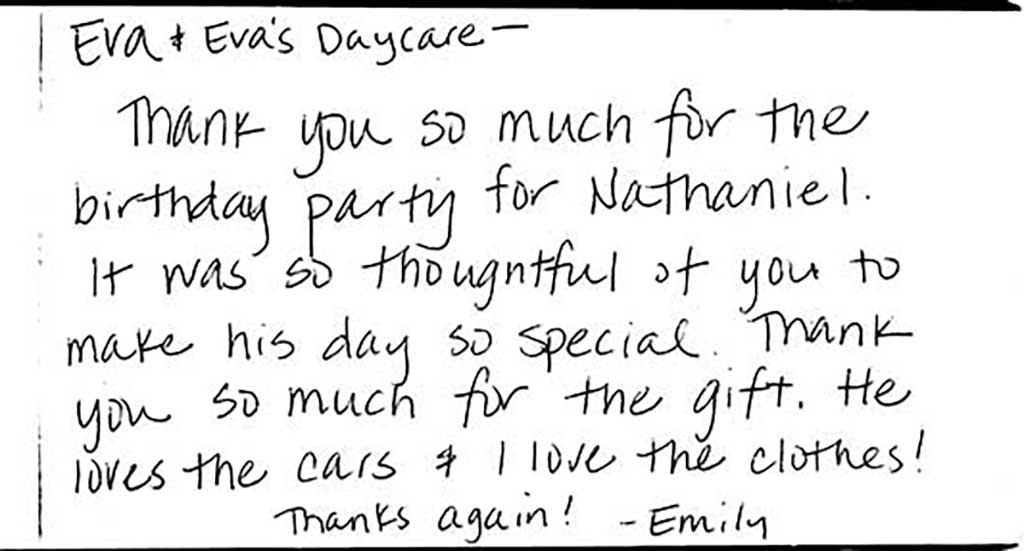 Eva & Eva's Daycare —
Thank you so much for the
birthday party for Nathaniel.
It was so thoughtful of you to
make his day so special. Thank
you so much for the gift. He
loves the cars & I love the clothes!
Thanks again! - Emily